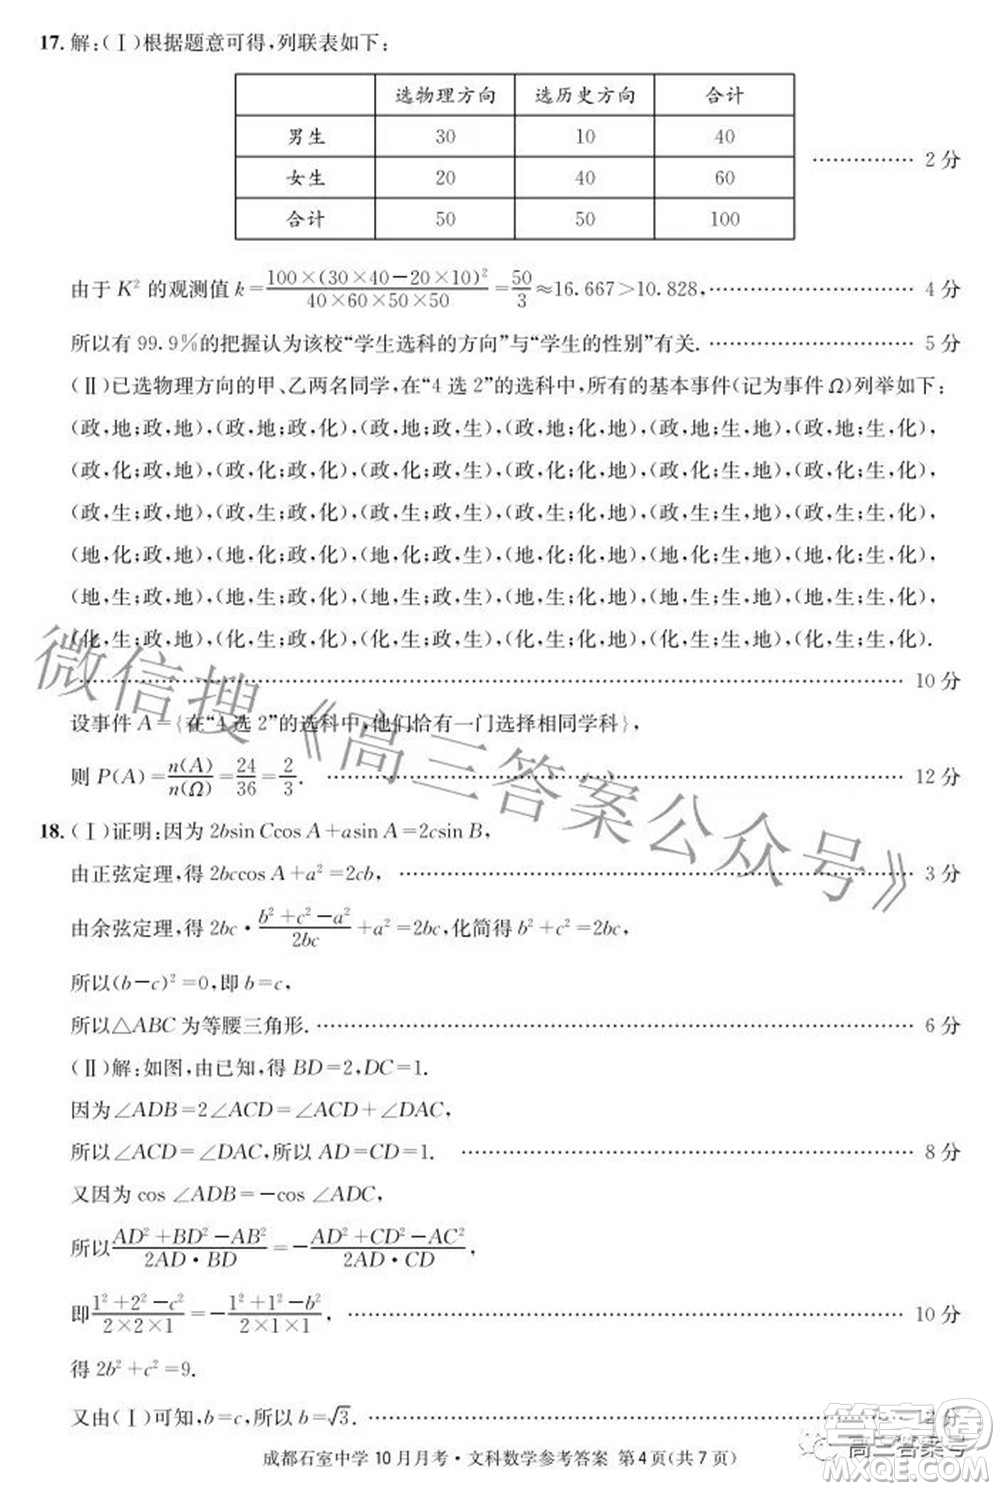 17. 解:(Ⅰ)根据题意可得,列联表如下:
选物理方向 选历史方向 合计
男生 30 10 40
女生 20 40 60
合计 50 50 100
…………… 2 分
由于 K² 的观测值 k=100×(30×40−20×10)²/40×60×50×50=50/3≈16.667>10.828,………………………… 4 分
所以有 99.9%的把握认为该校“学生选科的方向”与“学生的性别”有关.………………………… 5 分
(Ⅱ)已选物理方向的甲、乙两名同学,在“4 选 2”的选科中,所有的基本事件(记为事件 Ω)列举如下:
(政,地;政,地),(政,地;政,化),(政,地;政,生),(政,地;化,地),(政,地;生,地),(政,地;生,化),
(政,化;政,地),(政,化;政,化),(政,化;政,生),(政,化;化,地),(政,化;生,地),(政,化;生,化),
(政,生;政,地),(政,生;政,化),(政,生;政,生),(政,生;化,地),(政,生;生,地),(政,生;生,化),
(地,化;政,地),(地,化;政,化),(地,化;政,生),(地,化;化,地),(地,化;生,地),(地,化;生,化),
(地,生;政,地),(地,生;政,化),(地,生;政,生),(地,生;化,地),(地,生;生,地),(地,生;生,化),
(化,生;政,地),(化,生;政,化),(化,生;政,生),(化,生;化,地),(化,生;生,地),(化,生;生,化).
………………………… 10 分
设事件 A={在“4 选 2”的选科中,他们恰有一门选择相同学科},
则 P(A)=n(A)/n(Ω)=24/36=2/3. ………………………… 12 分
18. (Ⅰ)证明:因为 2bsin Ccos A+asin A=2csin B,
由正弦定理,得 2bccos A+a²=2cb,………………………… 3 分
由余弦定理,得 2bc·b²+c²−a²/2bc+a²=2bc,化简得 b²+c²=2bc,
所以(b−c)²=0,即 b=c,
所以△ABC 为等腰三角形.………………………… 6 分
(Ⅱ)解:如图,由已知,得 BD=2,CD=1.
因为∠ADB=2∠ACD=∠ACD+∠DAC,
所以∠ACD=∠DAC,所以 AD=CD=1. ………………………… 8 分
又因为 cos ∠ADB=−cos ∠ADC,
所以AD²+BD²−AB²/2AD·BD=−AD²+CD²−AC²/2AD·CD,
即1²+2²−c²/2×2×1=−1²+1²−b²/2×1×1,………………………… 10 分
得 2b²+c²=9.
又由(Ⅰ)可知,b=c,所以 b=√3.………………………… 12 分
成都石室中学 10 月月考·文科数学参考答案 第 4 页(共 7 页)
微信搜《高三答案公众号》
高三答案号
答案圈
MXQE.COM